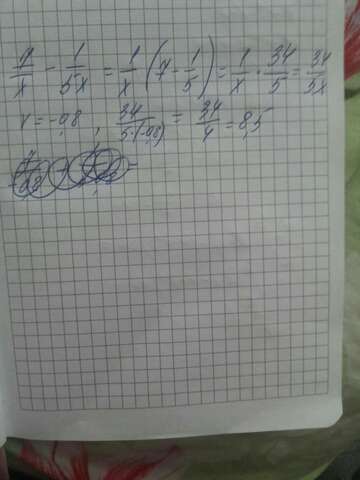 7/x - 1/5x = 1/x (7 - 1/5) = 1/x · 34/5 = 34/5x
x = -0,8 , 34/5·(-0,8) = 34/4 = 8,5